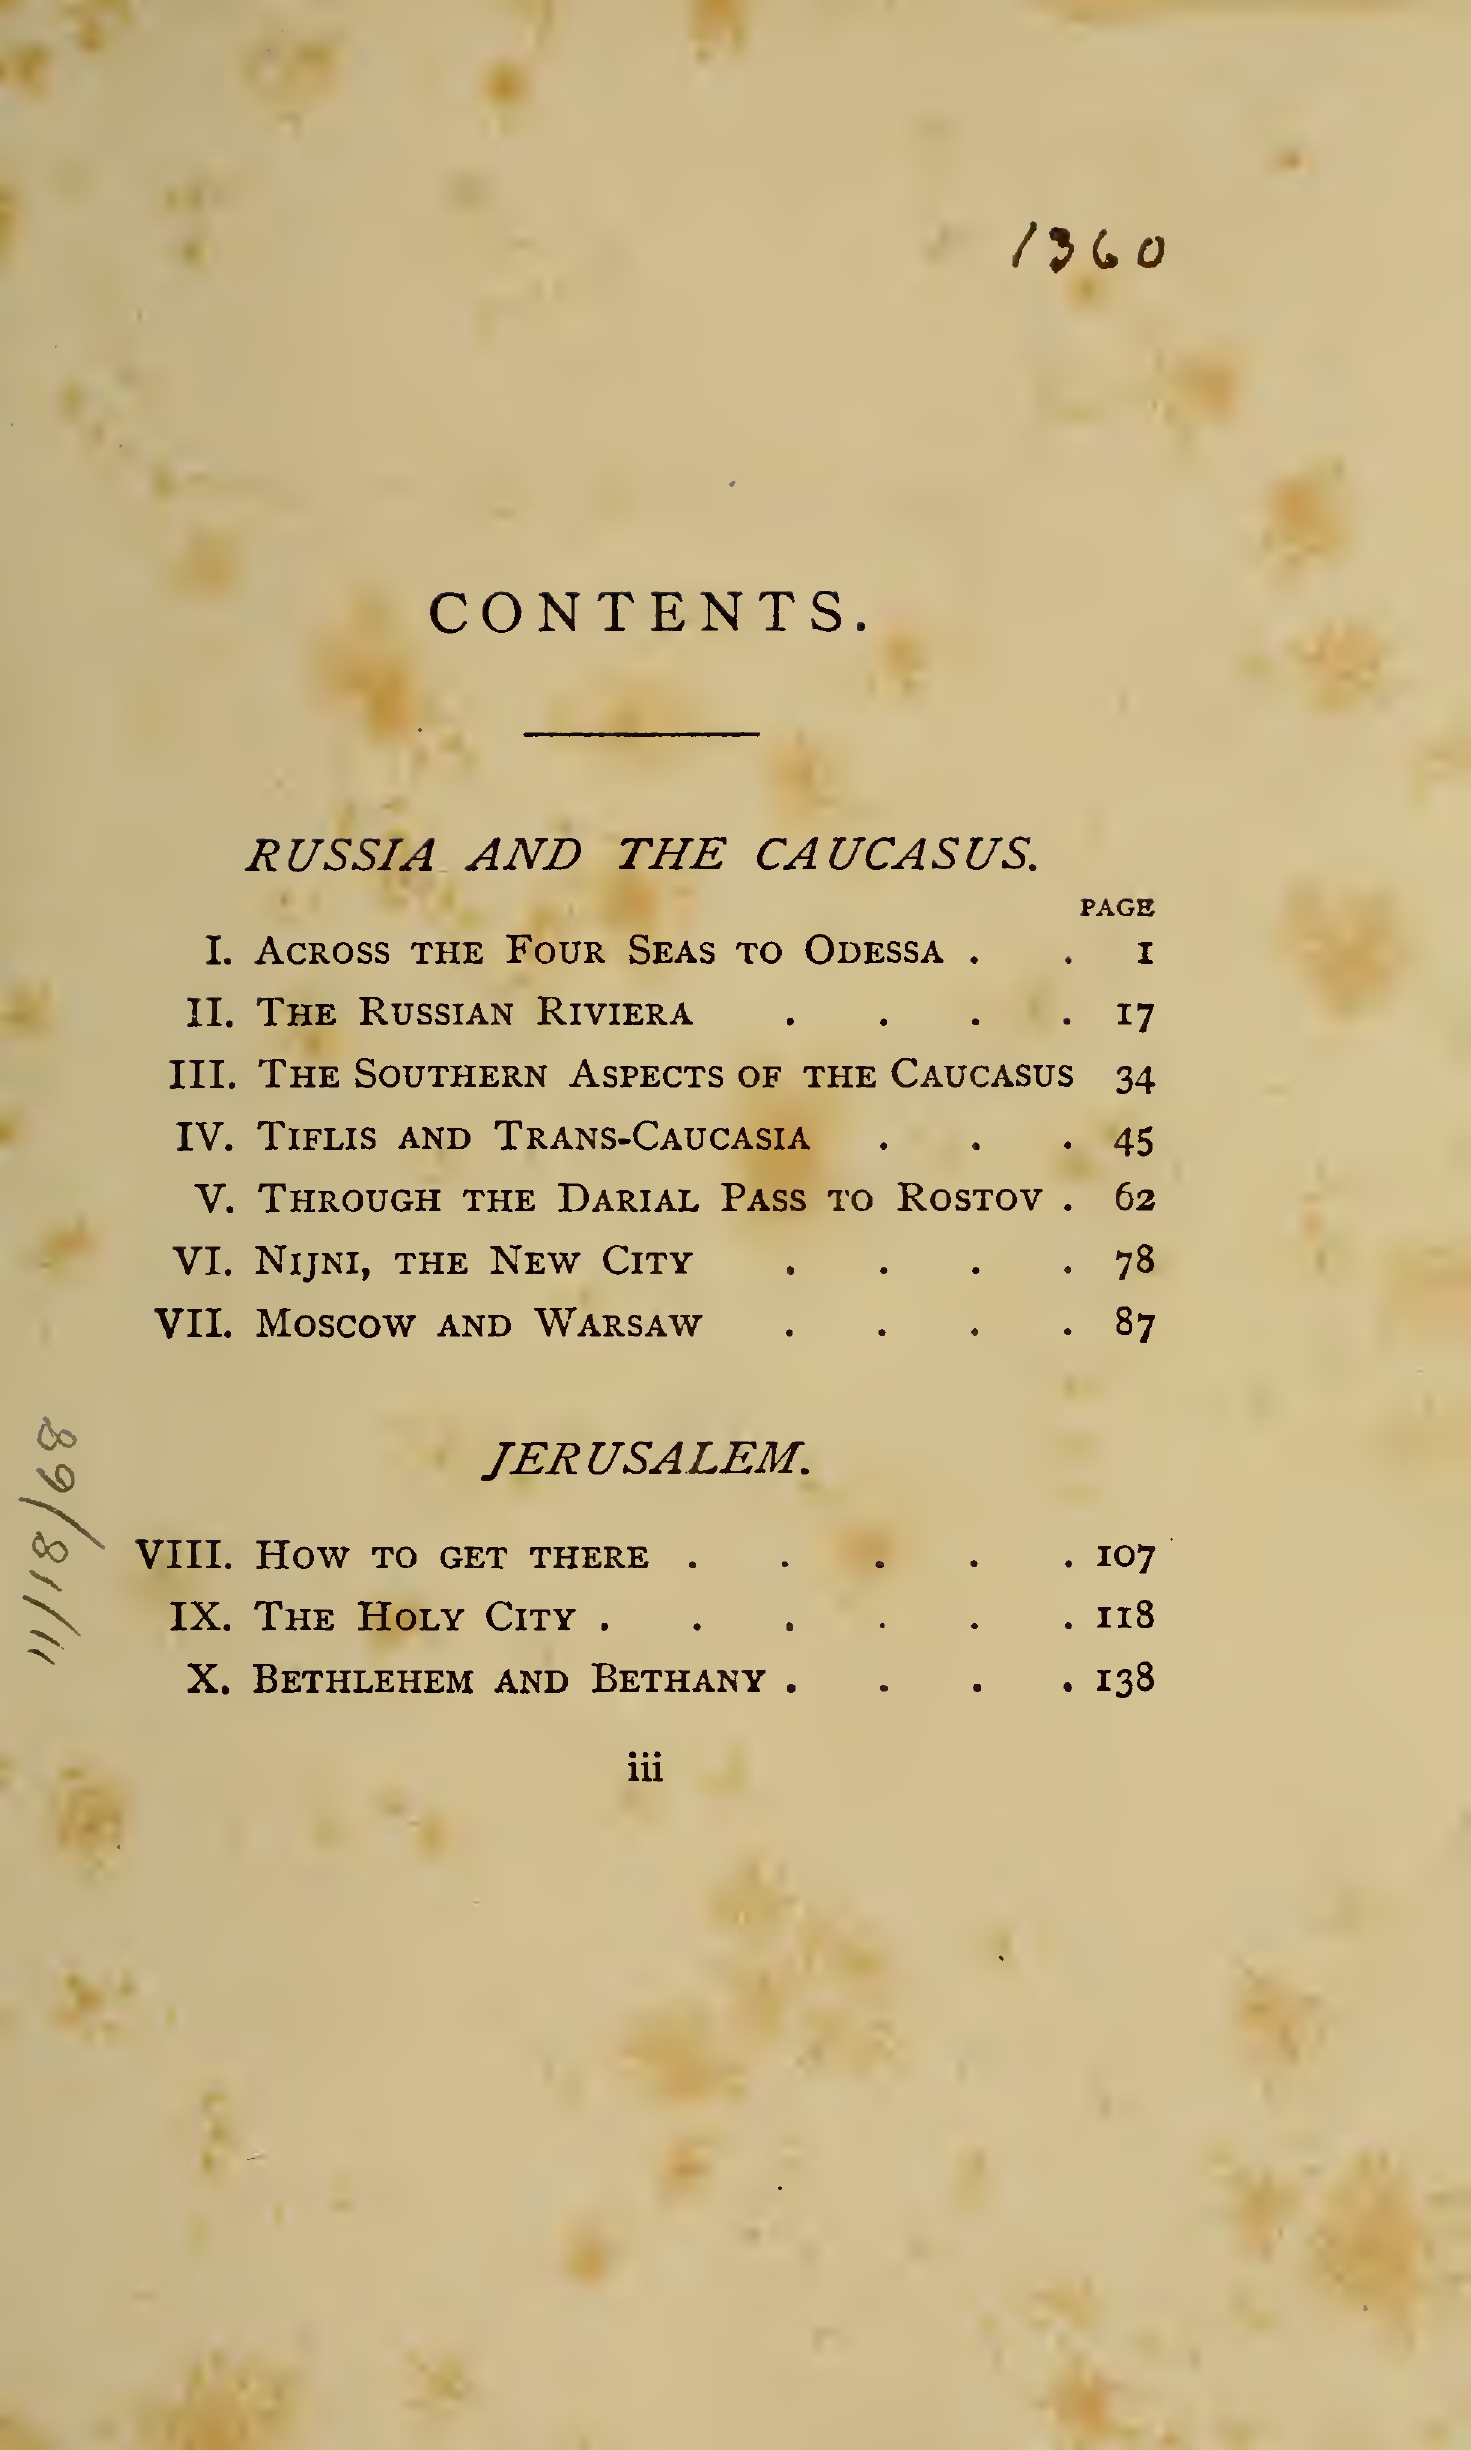 1360
CONTENTS.
RUSSIA AND THE CAUCASUS.
PAGE
I. ACROSS THE FOUR SEAS TO ODESSA . . 1
II. THE RUSSIAN RIVIERA . . . . 17
III. THE SOUTHERN ASPECTS OF THE CAUCASUS 34
IV. TIFLIS AND TRANS-CAUCASIA . . . 45
V. THROUGH THE DARIAL PASS TO ROSTOV . 62
VI. NIJNI, THE NEW CITY . . . . 78
VII. MOSCOW AND WARSAW . . . . 87
JERUSALEM.
VIII. HOW TO GET THERE . . . . . 107
IX. THE HOLY CITY . . . . . . 118
X. BETHLEHEM AND BETHANY . . . . 138
iii
11/18/68